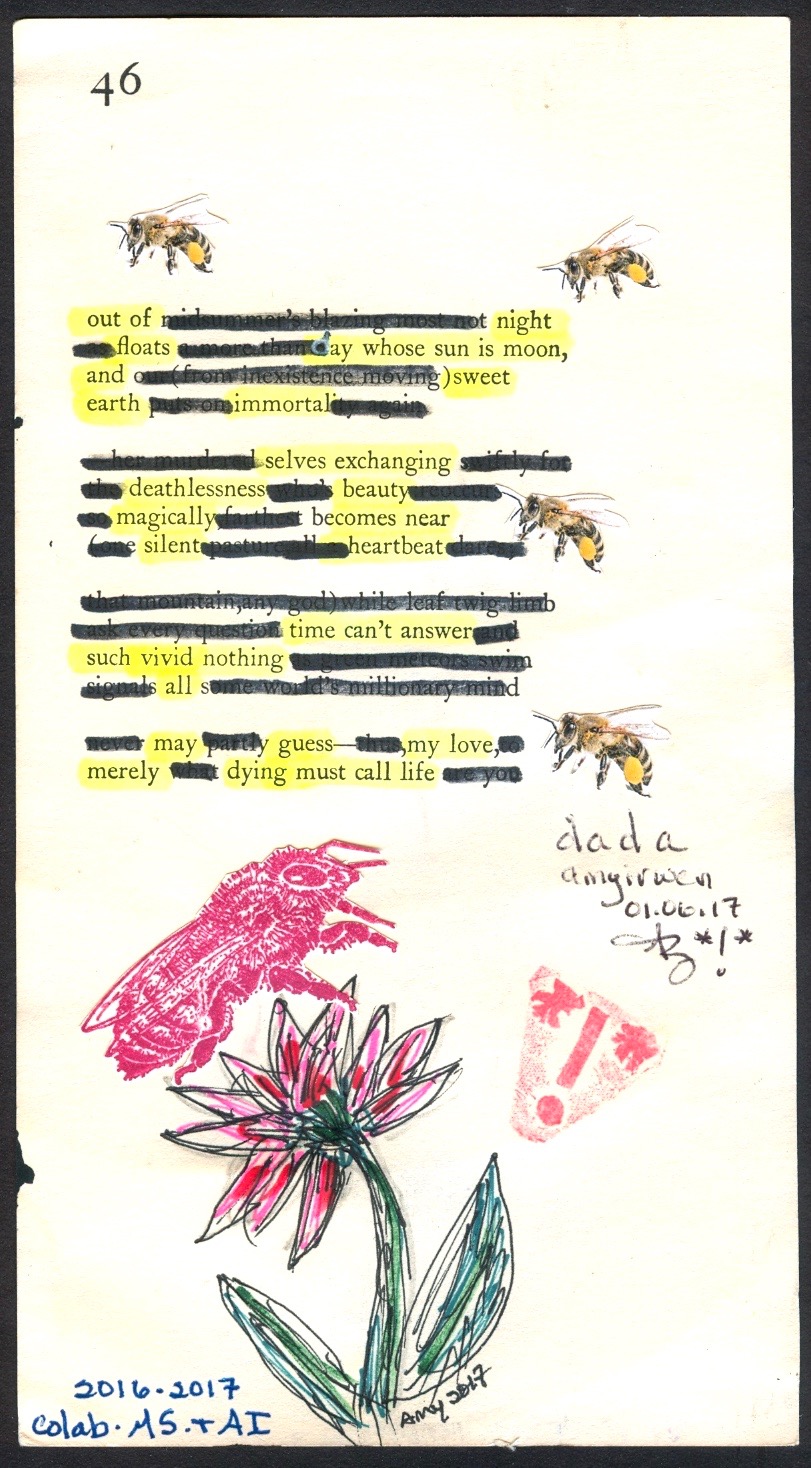 46
out of midsummer's blazing most not night
as floats a more than day whose sun is moon,
and our(from inexistence moving)sweet
earth puts on immortality again
—her murdered selves exchanging swiftly for
the deathlessness who's beauty reoccurs
so magically farthest becomes near
(one silent pasture,all a heartbeat dares;
that mountain,any god)while leaf twig limb
ask every question time can't answer and
such vivid nothing as green meteors swim
signals all some world's millionary mind
never may partly guess—thus,my love,to
merely what dying must call life are you
dada
amyirwen
01.06.17
*!*
*!*
2016-2017
Colab. MS. + AI
Amy 2017